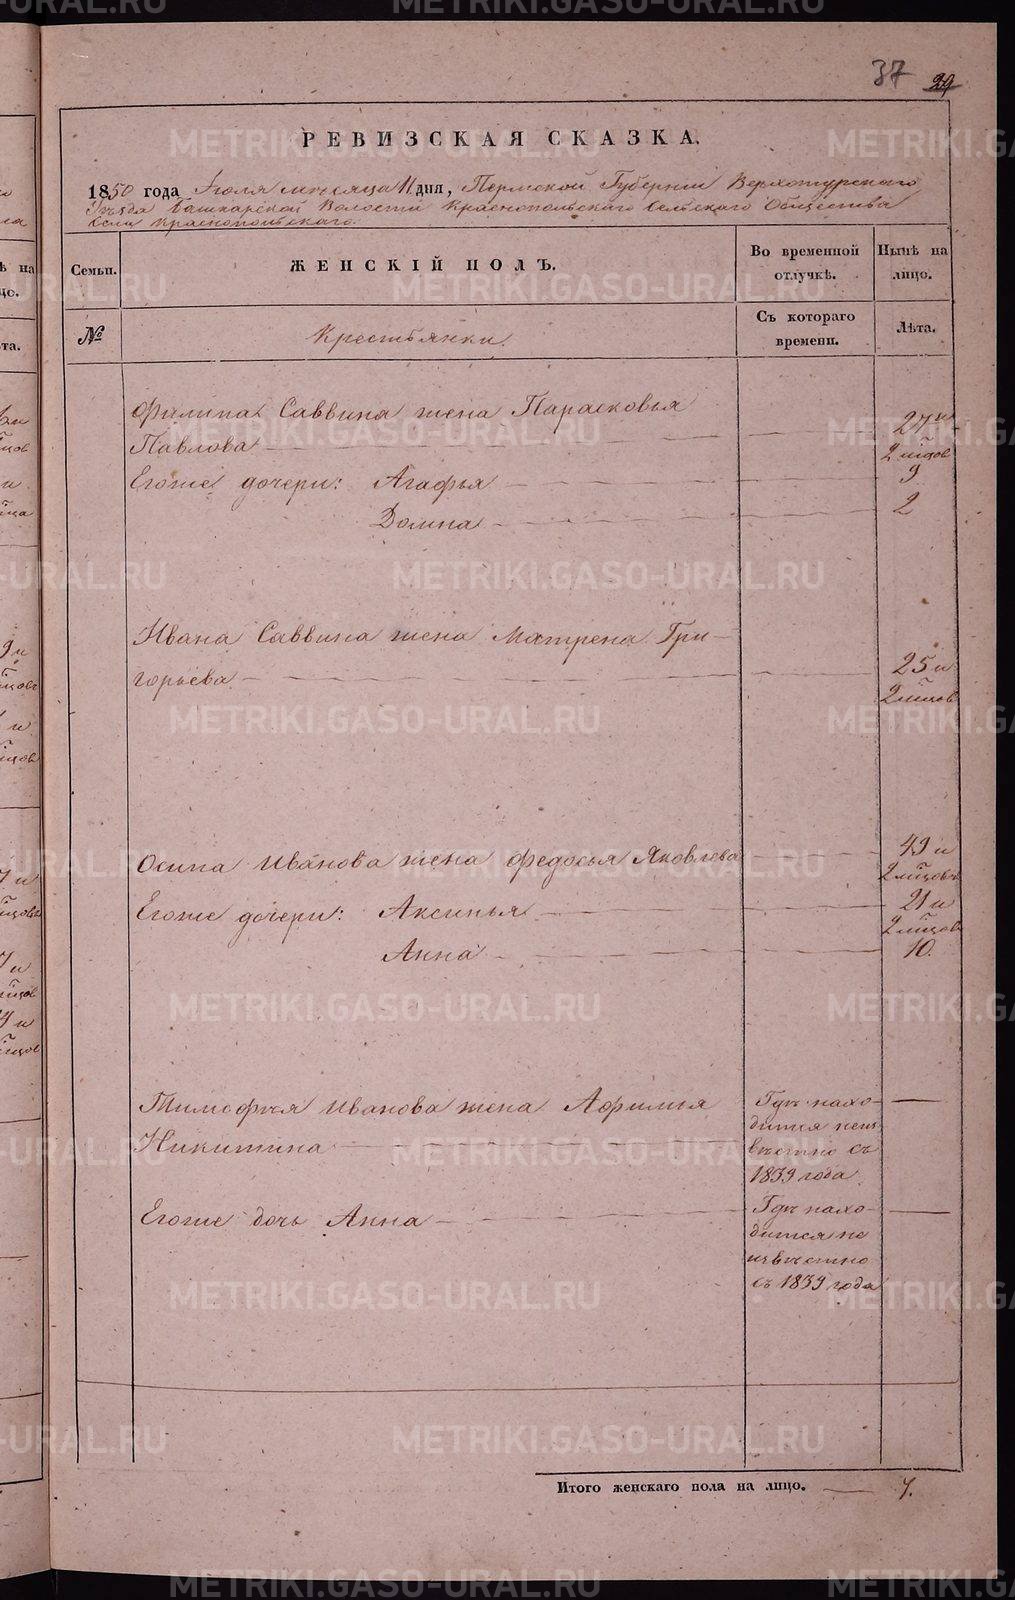 37 29
РЕВИЗСКАЯ СКАЗКА.
1850 года Іюля мѣсяца 11 дня, Пермской Губерніи Верхотурскаго
Уѣзда Башкарской Волости Краснопольскаго Сельскаго Общества
Села Краснопольскаго.
Семьи. ЖЕНСКІЙ ПОЛЪ. Во временной отлучкѣ. Нынѣ на лицо.
№ Крестьянки. Съ котораго времени. Лѣта.
Филипа Саввина жена Парасковья
Павлова 27 и
2 мѣсцов
Егоже дочери: Агафья 9
Домна 2
Ивана Саввина жена Матрена Гри-
горьева 25 и
2 мѣсцов
Осипа Иванова жена Федосья Яковлева 49 и
2 мѣсцовъ
Егоже дочери: Аксинья 21 и
2 мѣсцов
Анна 10.
Тимофѣя Иванова жена Афимья Гдѣ нахо-
Никитина дится неиз
вѣстно съ
1839 года.
Егоже дочь Анна Гдѣ нахо-
дится не
извѣстно
съ 1839 года
Итого женскаго пола на лицо. 7.
METRIKI.GASO-URAL.RU